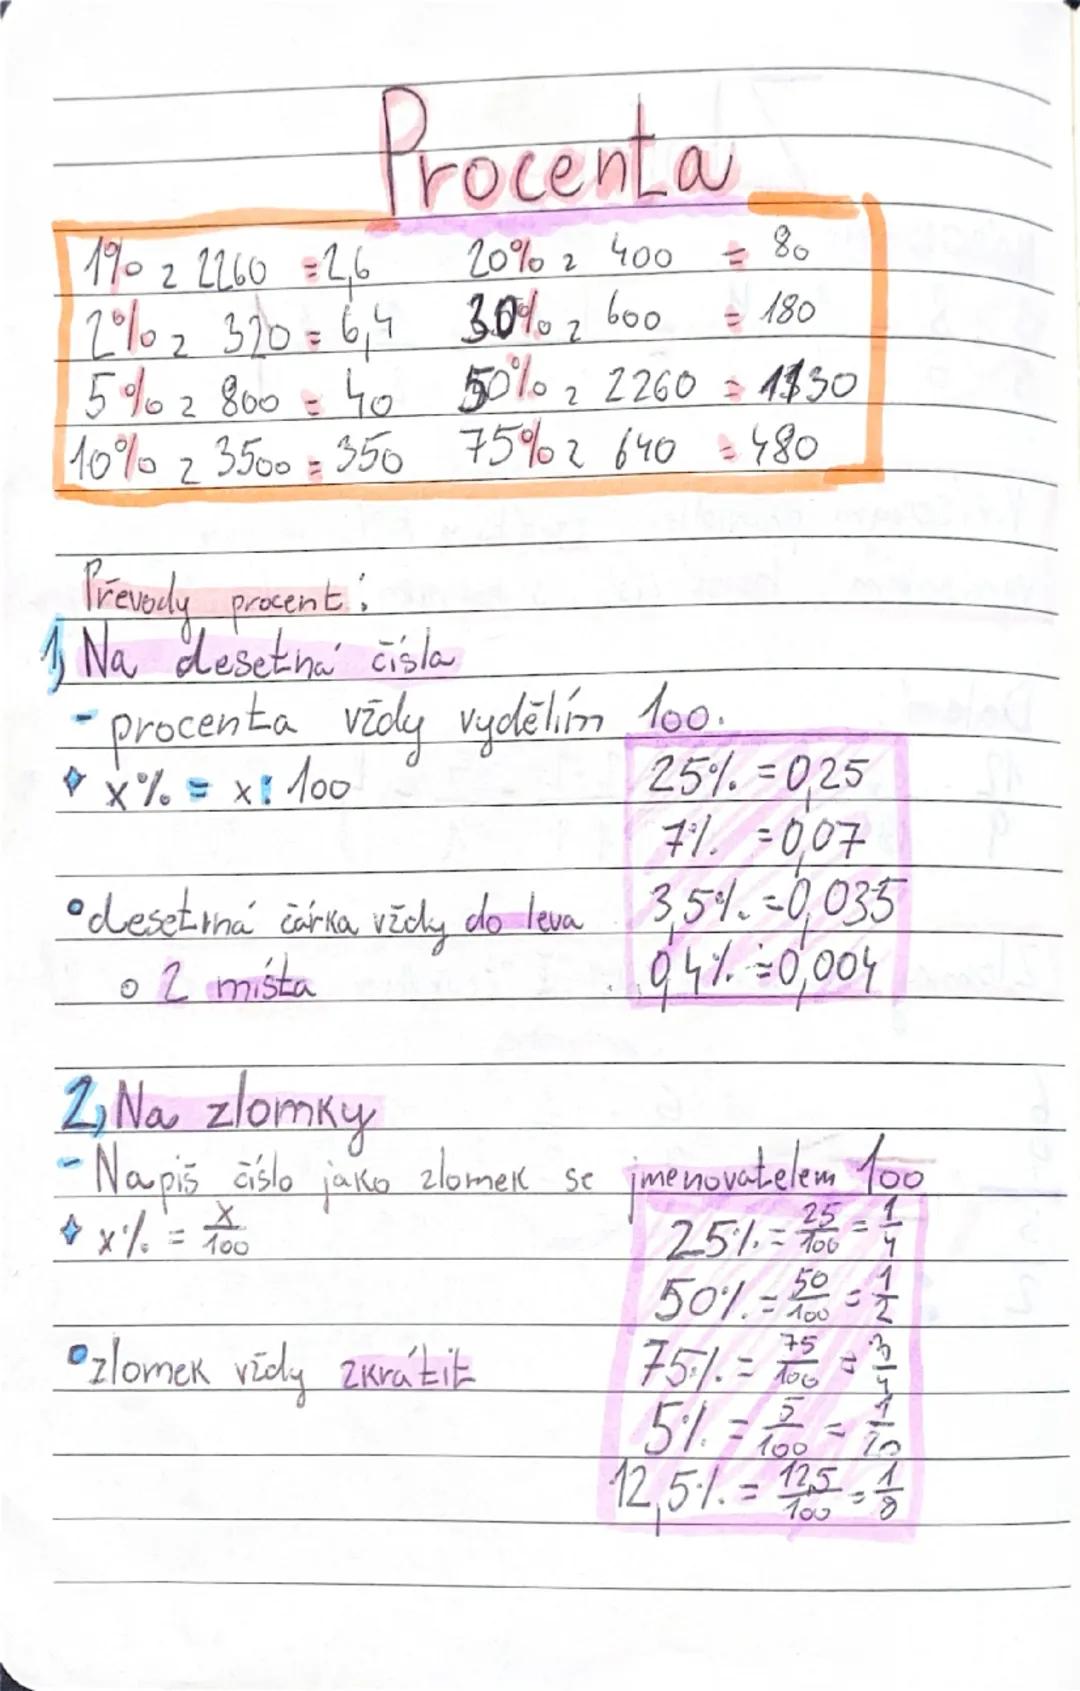 Procenta
1% z 2260 = 2,6 20% z 400 = 80
2% z 320 = 6,4 30% z 600 = 180
5% z 800 = 40 50% z 2260 = 1130
10% z 3500 = 350 75% z 640 = 480
Převody procent:
1, Na desetná čísla
- procenta vždy vydělím 100.
x% = x : 100 25% = 0,25
7% = 0,07
• desetiná čárka vždy do leva 3,5% = 0,035
o 2 místa 0,4% = 0,004
2, Na zlomky
- Napiš číslo jako zlomek se jmenovatelem 100
x% = x/100 25% = 25/100 = 1/4
50% = 50/100 = 1/2
• zlomek vždy zkrátit 75% = 75/100 = 3/4
5% = 5/100 = 1/20
12,5% = 12,5/100 = 1/8